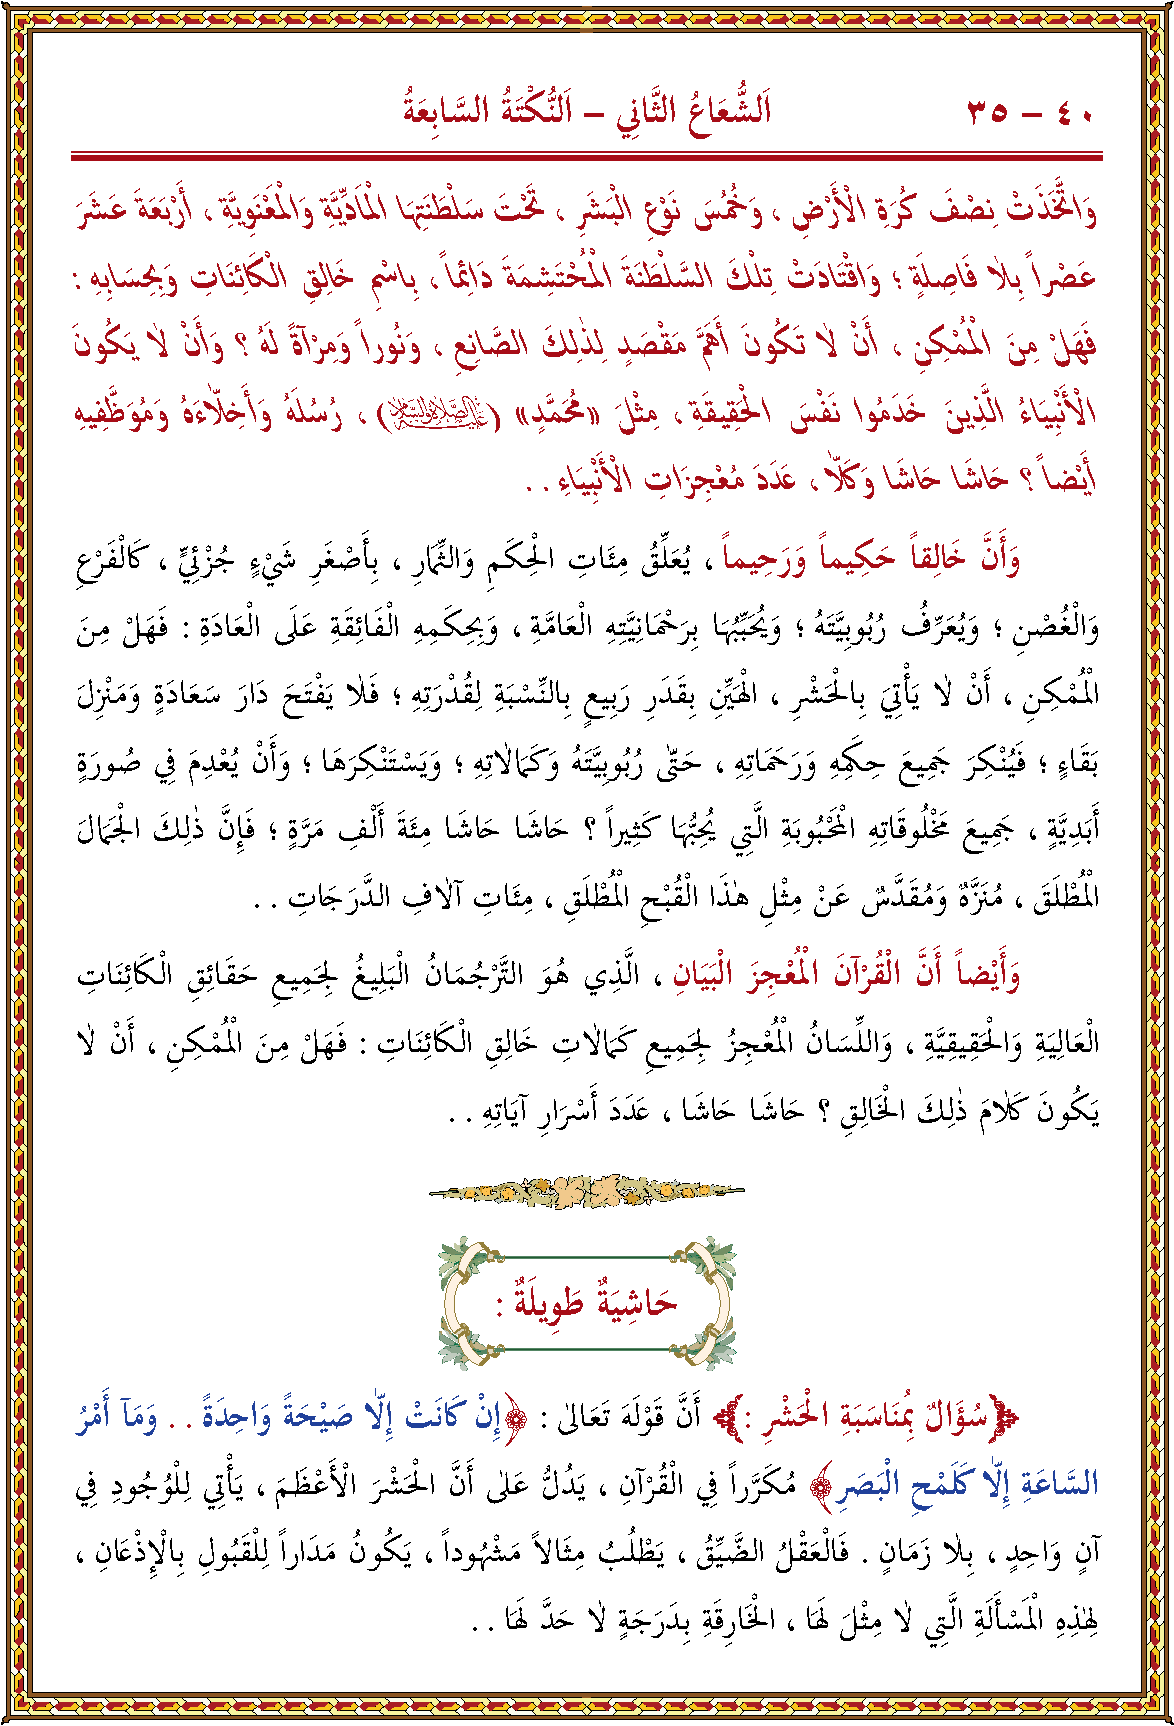 ٤٠ – ٣٥ اَلشُّعَاعُ الثَّانِي – اَلنُّكْتَةُ السَّابِعَةُ
وَاتَّخَذَتْ نِصْفَ كُرَةِ الْأَرْضِ ، وَخُمُسَ نَوْعِ الْبَشَرِ ، تَحْتَ سَلْطَنَتِهَا الْمَادِّيَّةِ وَالْمَعْنَوِيَّةِ ، أَرْبَعَةَ عَشَرَ
عَصْراً بِلَا فَاصِلَةٍ ؛ وَاقْتَادَتْ تِلْكَ السَّلْطَنَةَ الْمُحْتَشِمَةَ دَائِماً ، بِاسْمِ خَالِقِ الْكَائِنَاتِ وَبِحِسَابِهِ :
فَهَلْ مِنَ الْمُمْكِنِ ، أَنْ لَا تَكُونَ أَهَمَّ مَقْصَدٍ لِذٰلِكَ الصَّانِعِ ، وَنُوراً وَمِرْآةً لَهُ ؟ وَأَنْ لَا يَكُونَ
الْأَنْبِيَاءُ الَّذِينَ خَدَمُوا نَفْسَ الْحَقِيقَةِ ، مِثْلَ «مُحَمَّدٍ» (عَلَيْهِ الصَّلَاةُ وَالسَّلَامُ) ، رُسُلَهُ وَأَخِلَّاءَهُ وَمُوَظَّفِيهِ
أَيْضاً ؟ حَاشَا حَاشَا وَكَلَّا ، عَدَدَ مُعْجِزَاتِ الْأَنْبِيَاءِ . .
وَأَنَّ خَالِقاً حَكِيماً وَرَحِيماً ، يُعَلِّقُ مِئَاتِ الْحِكَمِ وَالثِّمَارِ ، بِأَصْغَرِ شَيْءٍ جُزْئِيٍّ ، كَالْفَرْعِ
وَالْغُصْنِ ؛ وَيُعَرِّفُ رُبُوبِيَّتَهُ ؛ وَيُحَبِّبُهَا بِرَحْمَانِيَّتِهِ الْعَامَّةِ ، وَبِحِكَمِهِ الْفَائِقَةِ عَلَى الْعَادَةِ : فَهَلْ مِنَ
الْمُمْكِنِ ، أَنْ لَا يَأْتِيَ بِالْحَشْرِ ، الْهَيِّنِ بِقَدَرِ رَبِيعٍ بِالنِّسْبَةِ لِقُدْرَتِهِ ؛ فَلَا يَفْتَحَ دَارَ سَعَادَةٍ وَمَنْزِلَ
بَقَاءٍ ؛ فَيُنْكِرَ جَمِيعَ حِكَمِهِ وَرَحَمَاتِهِ ، حَتَّى رُبُوبِيَّتَهُ وَكَمَالَاتِهِ ؛ وَيَسْتَنْكِرَهَا ؛ وَأَنْ يُعْدِمَ فِي صُورَةٍ
أَبَدِيَّةٍ ، جَمِيعَ مَخْلُوقَاتِهِ الْمَحْبُوبَةِ الَّتِي يُحِبُّهَا كَثِيراً ؟ حَاشَا حَاشَا مِئَةَ أَلْفِ مَرَّةٍ ؛ فَإِنَّ ذٰلِكَ الْجَمَالَ
الْمُطْلَقَ ، مُنَزَّهٌ وَمُقَدَّسٌ عَنْ مِثْلِ هٰذَا الْقُبْحِ الْمُطْلَقِ ، مِئَاتِ آلَافِ الدَّرَجَاتِ . .
وَأَيْضاً أَنَّ الْقُرْآنَ الْمُعْجِزَ الْبَيَانِ ، الَّذِي هُوَ التَّرْجُمَانُ الْبَلِيغُ لِجَمِيعِ حَقَائِقِ الْكَائِنَاتِ
الْعَالِيَةِ وَالْحَقِيقِيَّةِ ، وَاللِّسَانُ الْمُعْجِزُ لِجَمِيعِ كَمَالَاتِ خَالِقِ الْكَائِنَاتِ : فَهَلْ مِنَ الْمُمْكِنِ ، أَنْ لَا
يَكُونَ كَلَامَ ذٰلِكَ الْخَالِقِ ؟ حَاشَا حَاشَا ، عَدَدَ أَسْرَارِ آيَاتِهِ . .
حَاشِيَةٌ طَوِيلَةٌ :
﴿سُؤَالٌ بِمُنَاسَبَةِ الْحَشْرِ :﴾ أَنَّ قَوْلَهُ تَعَالَى : ﴿إِنْ كَانَتْ إِلَّا صَيْحَةً وَاحِدَةً . . وَمَآ أَمْرُ
السَّاعَةِ إِلَّا كَلَمْحِ الْبَصَرِ﴾ مُكَرَّراً فِي الْقُرْآنِ ، يَدُلُّ عَلَى أَنَّ الْحَشْرَ الْأَعْظَمَ ، يَأْتِي لِلْوُجُودِ فِي
آنٍ وَاحِدٍ ، بِلَا زَمَانٍ . فَالْعَقْلُ الضَّيِّقُ ، يَطْلُبُ مِثَالاً مَشْهُوداً ، يَكُونُ مَدَاراً لِلْقَبُولِ بِالْإِذْعَانِ ،
لِهٰذِهِ الْمَسْأَلَةِ الَّتِي لَا مِثْلَ لَهَا ، الْخَارِقَةِ بِدَرَجَةٍ لَا حَدَّ لَهَا . .